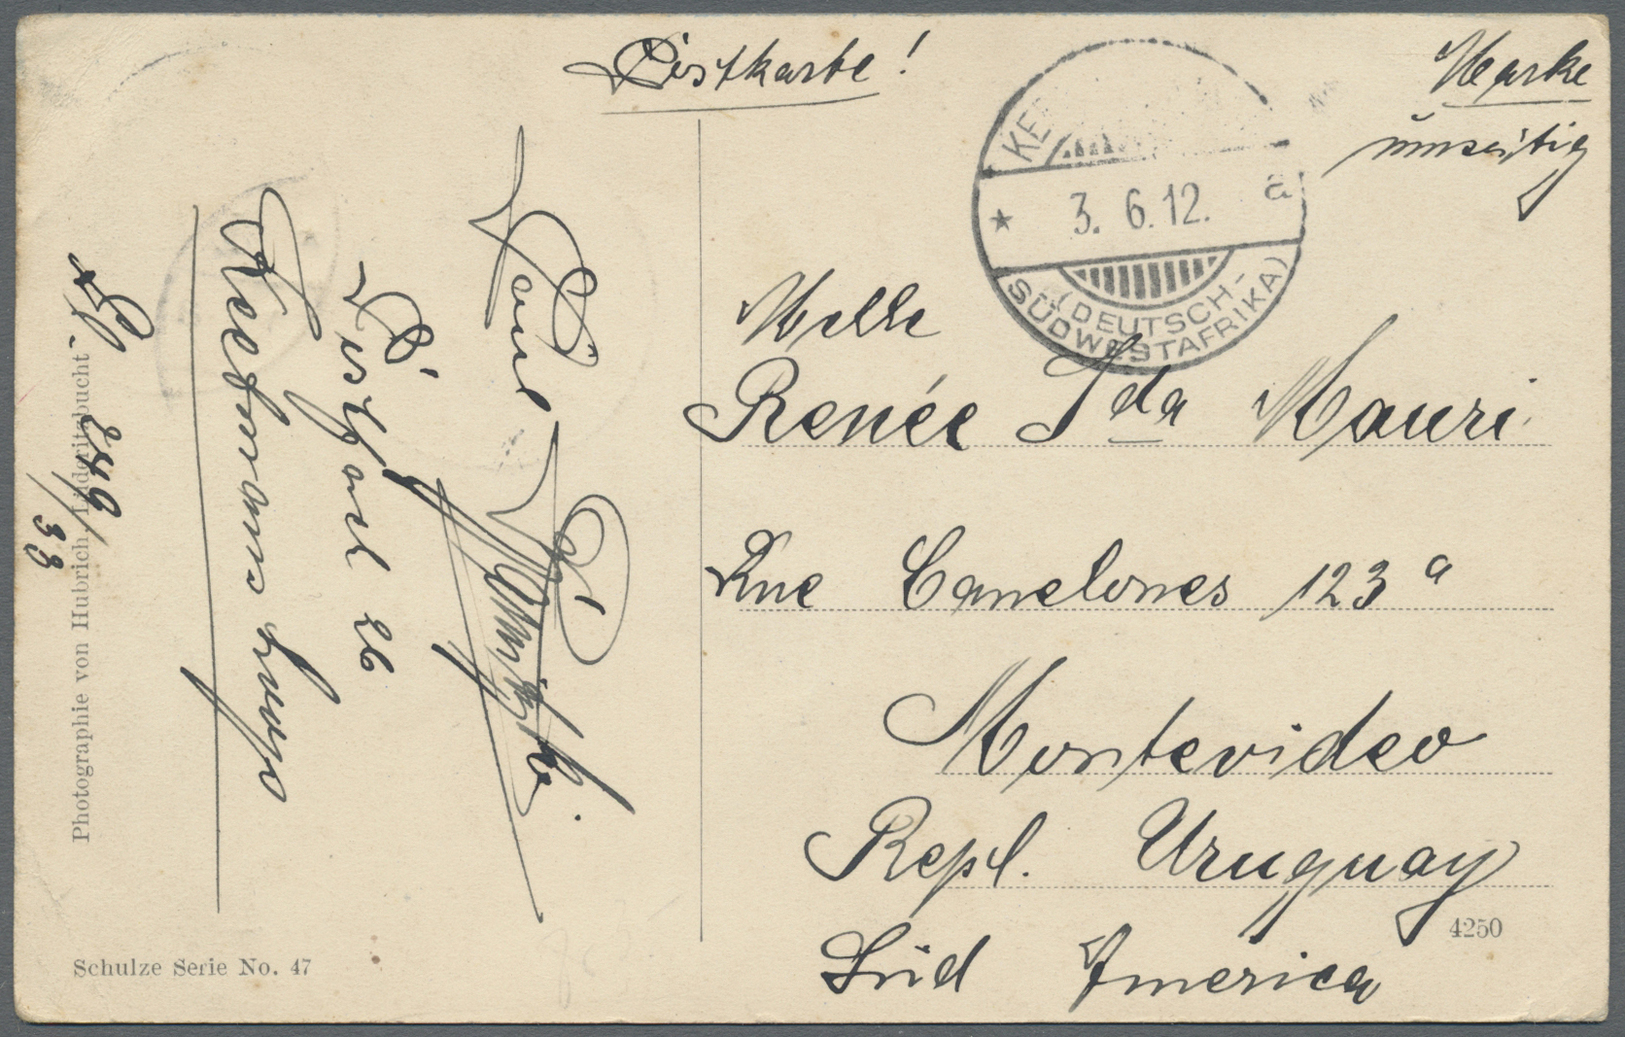 Postkarte!
Marke
umseitig
KEE
3. 6. 12. a
(DEUTSCH-
SÜDWESTAFRIKA)
Melle
Renée Ida Mauri
Rue Canelones 123 a
Montevideo
Repl. Uruguay
Süd America
4250
Paul
Postfach 26
Keetmanshoop
249/33
Photographie von Hubrich, Lüderitzbucht
Schulze Serie No. 47